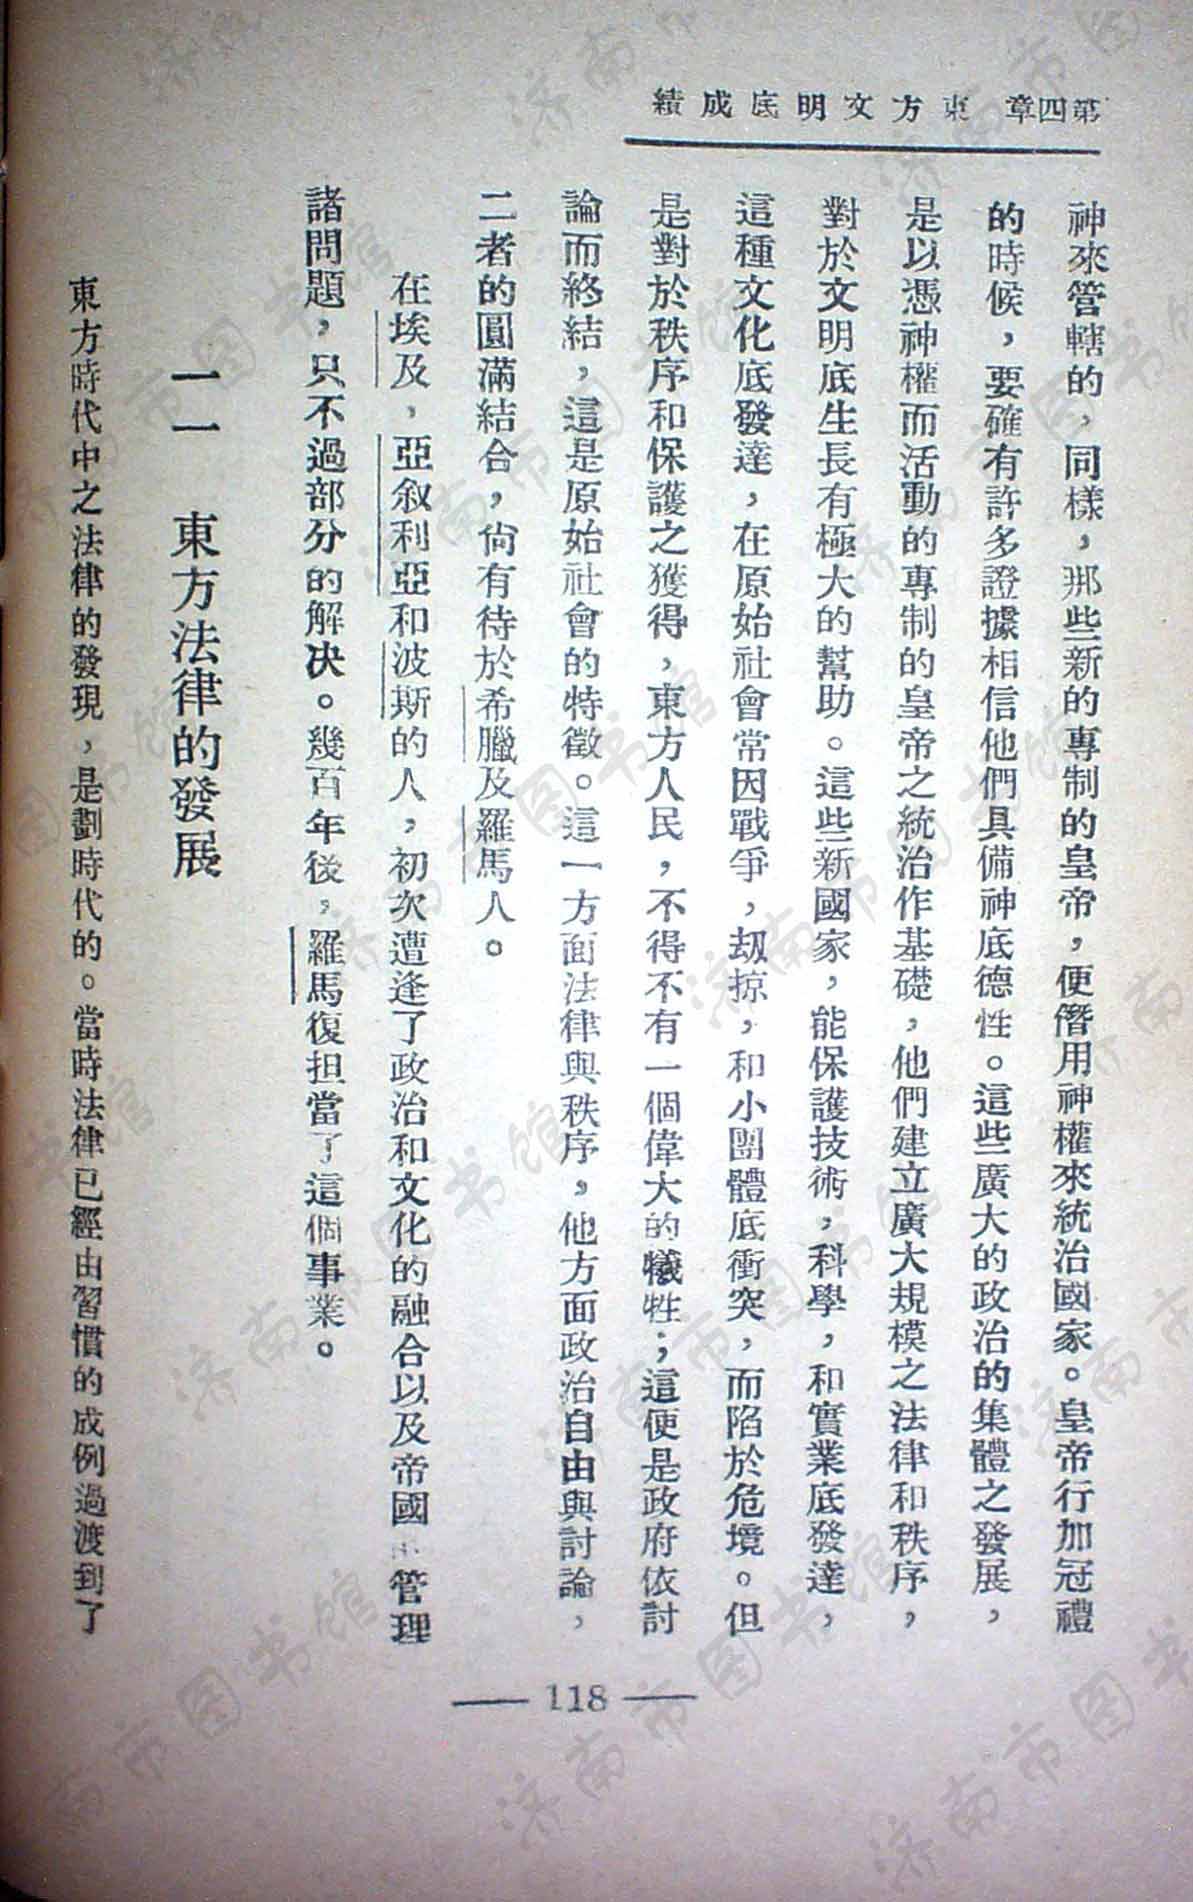 第四章 東方文明底成績
神來管轄的，同樣，那些新的專制的皇帝，便僭用神權來統治國家。皇帝行加冠禮
的時候，要確有許多證據相信他們具備神底德性。這些廣大的政治的集體之發展，
是以憑神權而活動的專制的皇帝之統治作基礎，他們建立廣大規模之法律和秩序，
對於文明底生長有極大的幫助。這些新國家，能保護技術，科學，和實業底發達，
這種文化底發達，在原始社會常因戰爭，刼掠，和小團體底衝突，而陷於危境。但
是對於秩序和保護之獲得，東方人民，不得不有一個偉大的犧牲；這便是政府依討
論而終結，這是原始社會的特徵。這一方面法律與秩序，他方面政治自由與討論，
二者的圓滿結合，尙有待於希臘及羅馬人。
在埃及，亞叙利亞和波斯的人，初次遭逢了政治和文化的融合以及帝國管理
諸問題，只不過部分的解決。幾百年後，羅馬復担當了這個事業。
一一 東方法律的發展
東方時代中之法律的發現，是劃時代的。當時法律已經由習慣的成例過渡到了
— 118 —
济南市图书馆